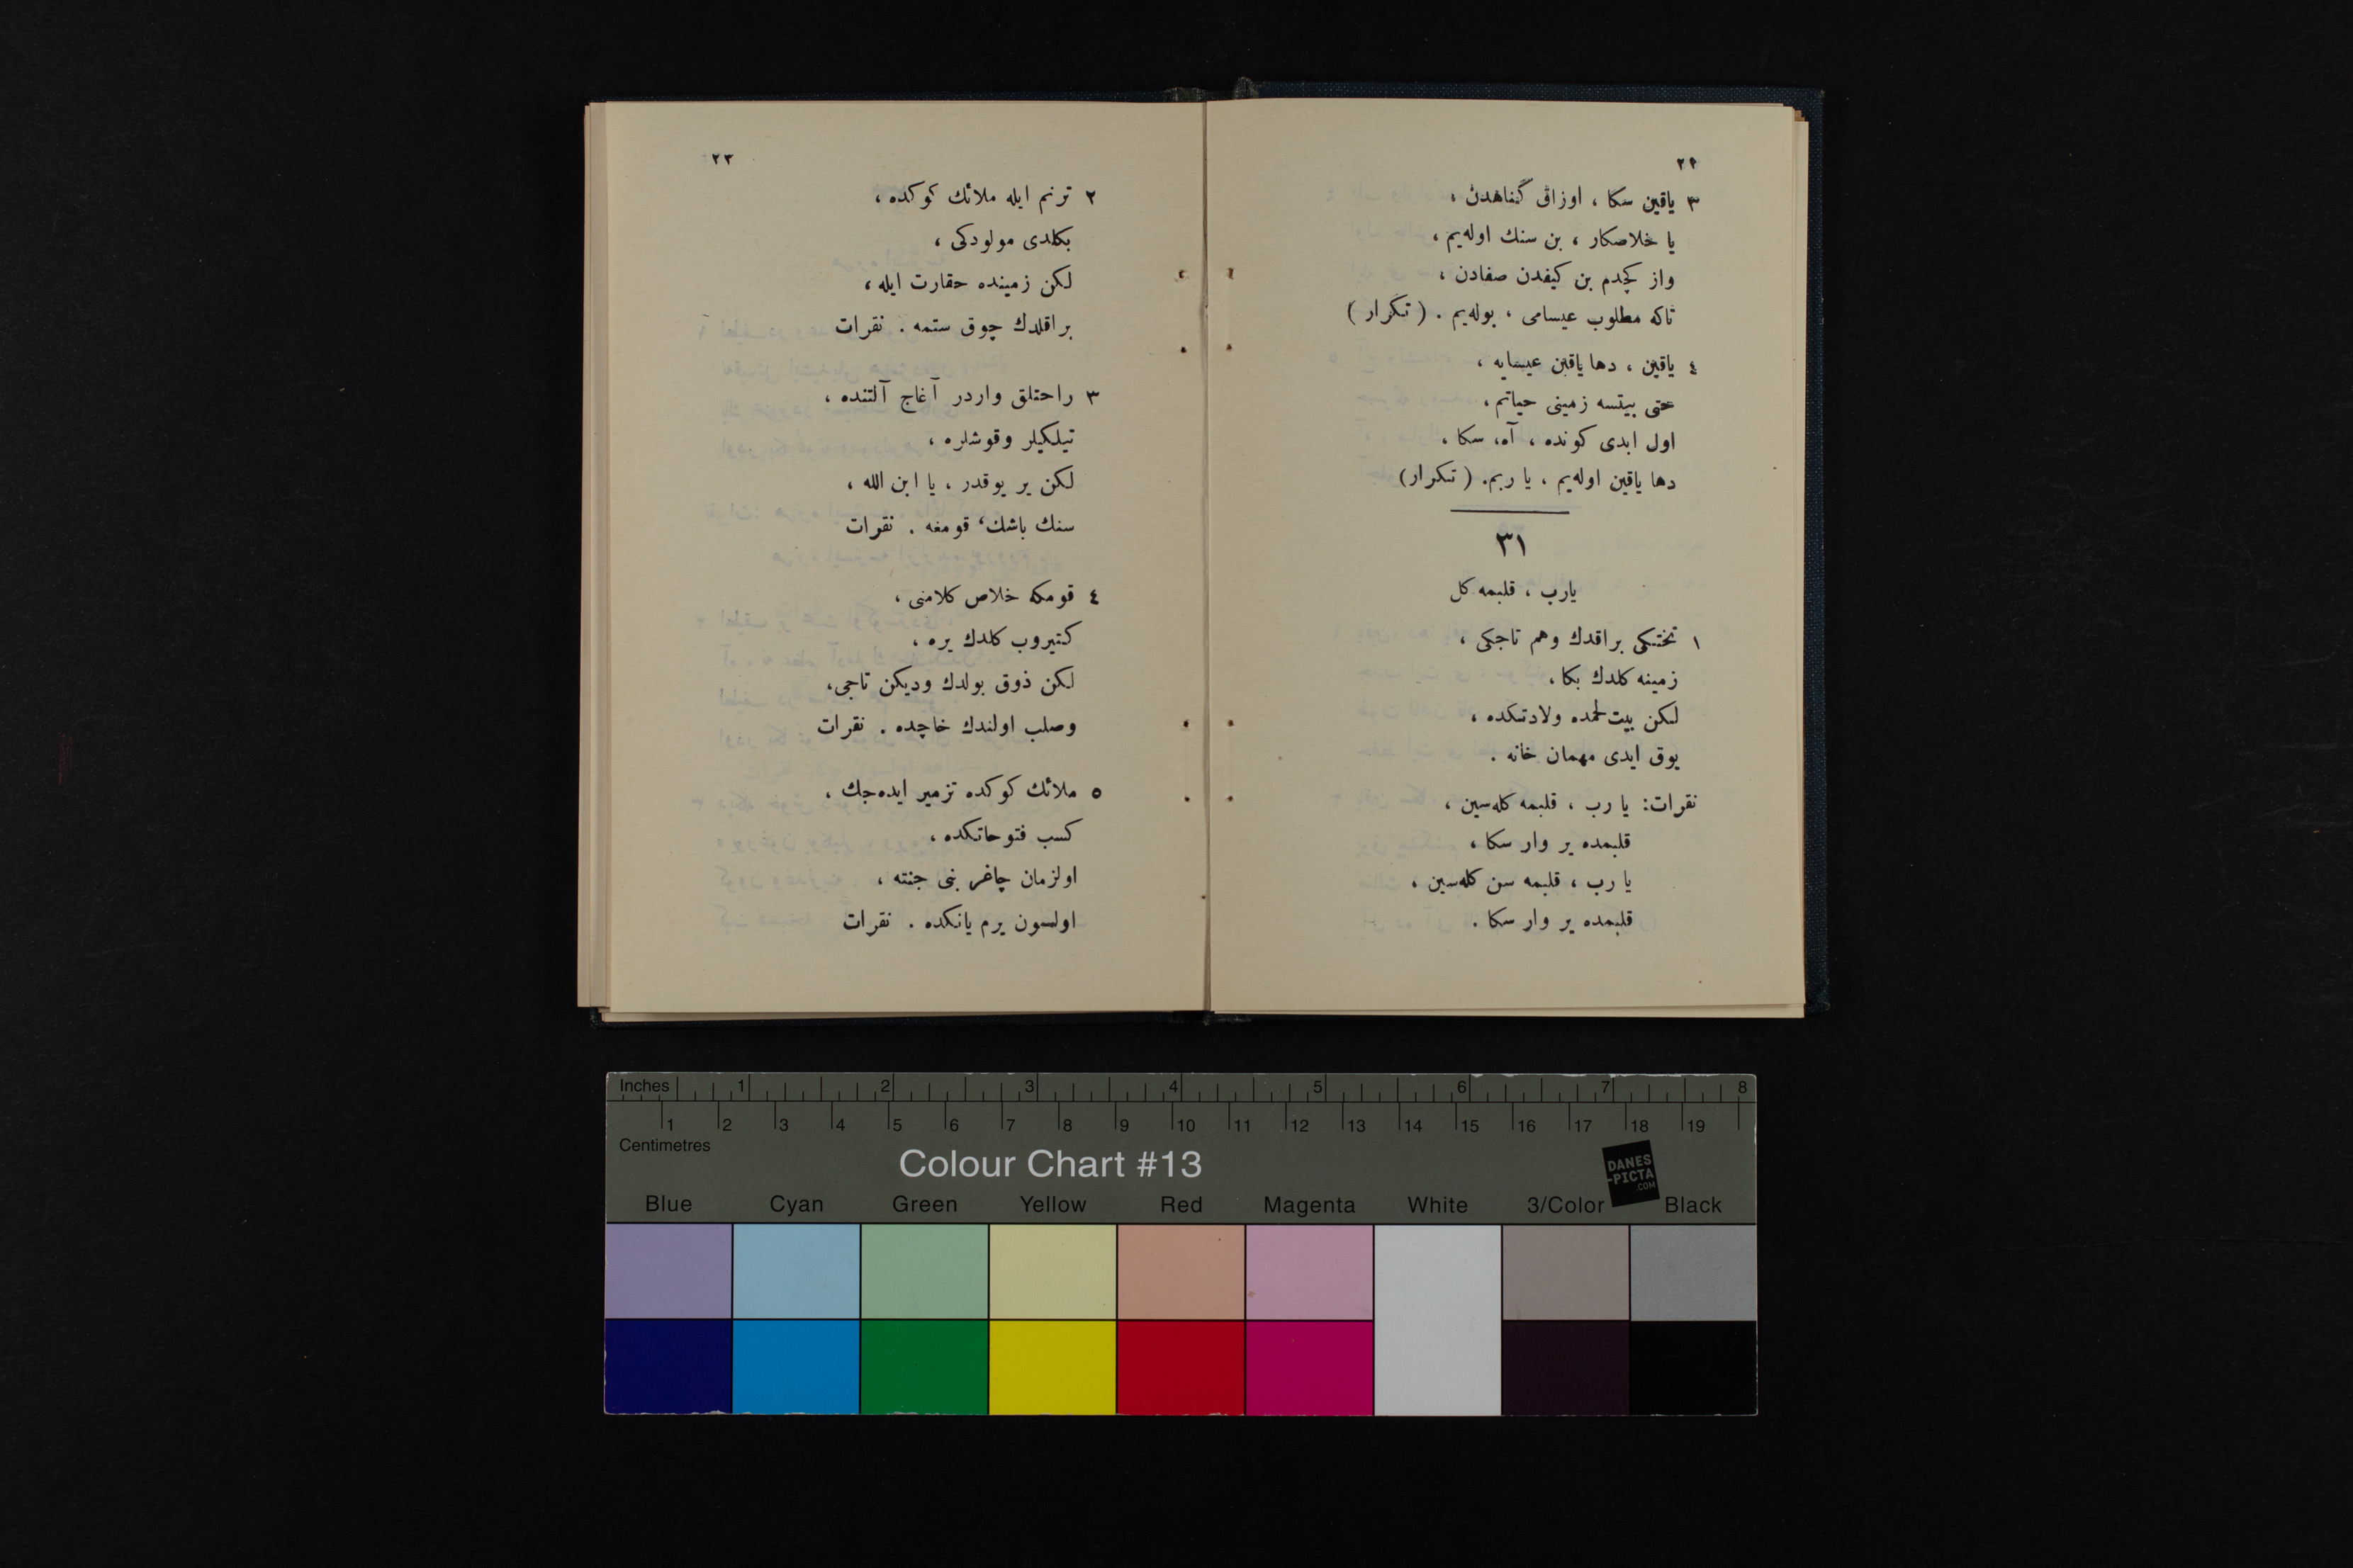 ٢٢
٣ ياقين سكا ، اوزاق گناهدن ،
يا خلاصكار ، بن سنك اوله‌يم ،
واز كچدم بن كيفدن صفادن ،
تاكه مطلوب عيسامى ، بوله‌يم . ( تكرار )
٤ ياقين ، دها ياقين عيسايه ،
حتى بيتسه زمينى حياتم ،
اول ابدى كونده ، آه، سكا ،
دها ياقين اوله‌يم ، يا ربم. ( تكرار)
٣١
يارب ، قلبمه كل
١ تختكى براقدك وهم تاجكى ،
زمينه كلدك بكا ،
لكن بيت‌لحمده ولادتكده ،
يوق ايدى مهمان خانه .
نقرات: يا رب ، قلبمه كله‌سين ،
قلبمده ير وار سكا ،
يا رب ، قلبمه سن كله‌سين ،
قلبمده ير وار سكا .
٢٣
٢ ترنم ايله ملائك كوكده ،
بكلدى مولودكى ،
لكن زمينده حقارت ايله ،
براقلدك چوق ستمه . نقرات
٣ راحتلق واردر آغاج آلتنده ،
تيلكيلر وقوشلره ،
لكن ير يوقدر ، يا ابن الله ،
سنك باشك، قومغه . نقرات
٤ قومكه خلاص كلامنى ،
كتيروب كلدك يره ،
لكن ذوق بولدك وديكن تاجى،
وصلب اولندك خاچده . نقرات
٥ ملائك كوكده تزمير ايده‌جك ،
كسب فتوحاتكده ،
اولزمان چاغر بنى جنته ،
اولسون يرم يانكده . نقرات
Inches 1 2 3 4 5 6 7 8
1 2 3 4 5 6 7 8 9 10 11 12 13 14 15 16 17 18 19
Centimetres
Colour Chart #13
DANES
-PICTA
.COM
Blue Cyan Green Yellow Red Magenta White 3/Color Black